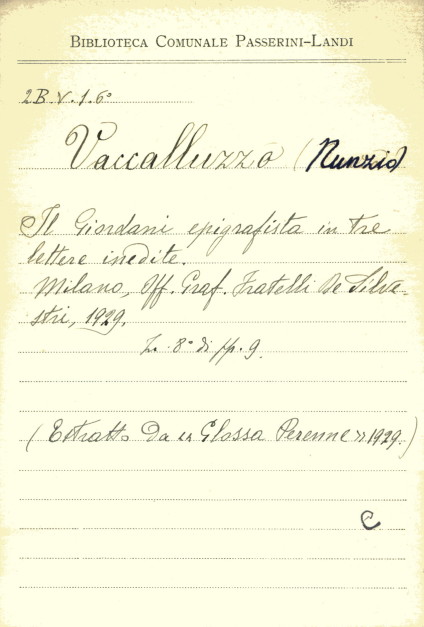 BIBLIOTECA COMUNALE PASSERINI-LANDI
2B.V.1.6°
Vaccalluzzo (Nunzio)
Il Giordani epigrafista in tre
lettere inedite.
Milano, Off. Graf. Fratelli De Silve-
stri, 1929.
in 8° di pp. 9.
(Estratto da «Glossa Perenne» 1929.)
C